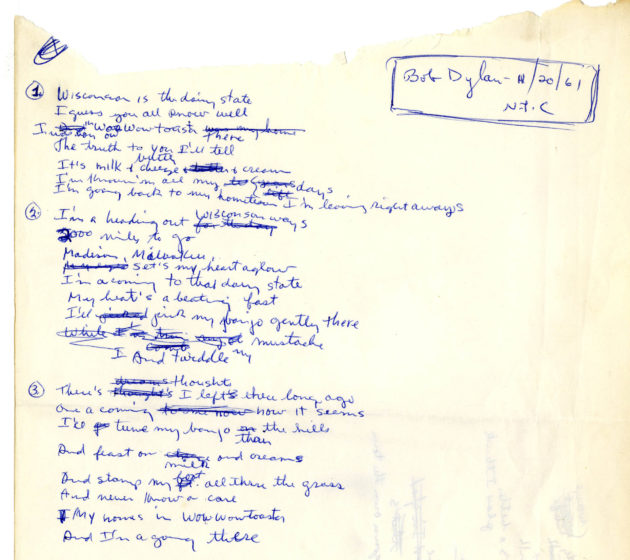 Bob Dylan - 11/20/61
N.Y.C
① Wisconsin is the dairy state
I guess you all know well
I was in Wow Wow toaster there
The truth to you I'll tell
It's milk & cheese & butter & cream
I'm known'm all my days
I'm going back to my hometown I'm leaving right aways
② I'm a heading out Wisconsin ways
2000 miles to go
Madison, Milwaukee,
Set's my heart aglow
I'm a coming to that dairy state
My heat's a beating fast
I'll pick my banjo gently there
mustache
I And twiddle my
③ There's thought I left's there long ago
One a coming how it seems
I'll tune my banjo
than the hills
And feast on milk and creams
And stamp my feet all thru the grass
And never know a care
My homes in Wow Wow toaster
And I'm a going there